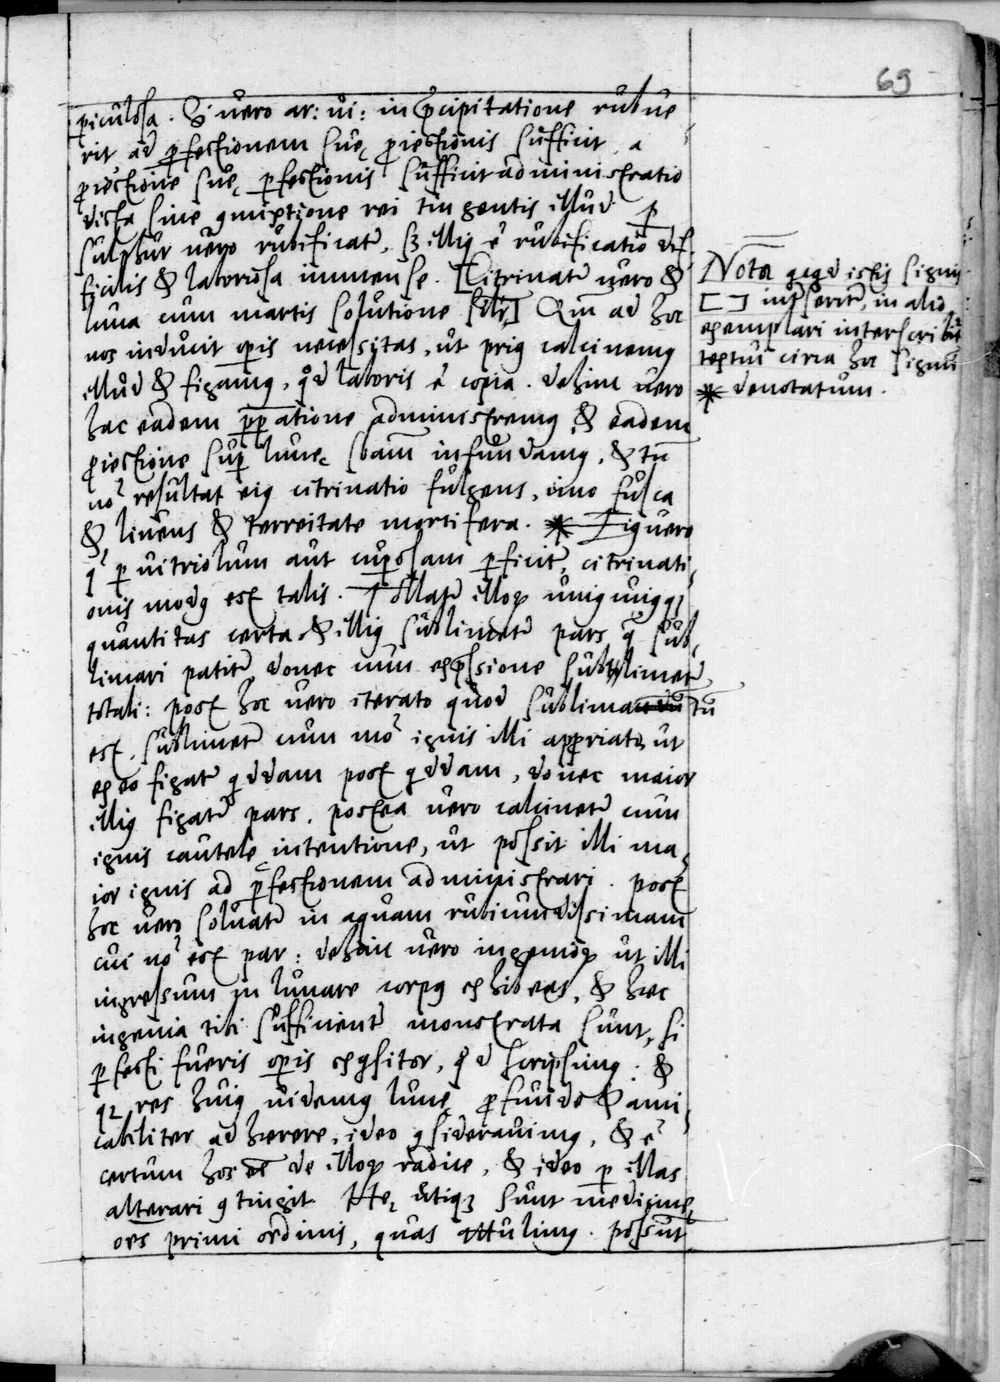 69
ꝑiculosa. Si uero ar: ui: in p̃cipitatione rubue
rit ad ꝑfectionem suę ꝓiectionis sufficit, a
ꝓiectione suę ꝑfectionis sufficit administratio
dicta sine ꝯmixtione rei tingentis illud ꝑ
sulphur uero rubificat᷑, sꝫ illiꝰ ē rubificatio dif
ficilis & laboriosa immense. [Citrinat᷑ uero &
luna cum martis solutione silr̃] Qm̃ ad hoc
nos inducit oꝑis necessitas, ut priꝰ calcinemꝰ
illud & figamꝰ, qd̃ laboris ē copia. dehinc uero
hac eadem p̃paratione administremꝰ & eadem
ꝓiectione suꝑ lunę sbãm infundamꝰ, & tũ
nõ resultat eiꝰ citrinatio fulgens, imo fusca
& liuens & terreitate mortifera. * Eiꝰ uero
q̃ ꝑ uitriolum aut cuꝑosam ꝑficit᷑, citrinati
onis modꝰ est talis. Tollat᷑ illoꝝ uniꝰcuiꝰqꝫ
quantitas certa & illiꝰ sublimet᷑ pars q̃ sub
limari patit᷑ donec cum exp̃ssione sublimet᷑
totali: post hoc uero iterato quod sublimatũ
est, sublimet᷑ cum mõ ignis illi appriato, ut
ex eo figat᷑ q̇ddam post q̇ddam, donec maior
illiꝰ figat᷑ pars. postea uero calcinet᷑ cum
ignis cautelę intentione, ut possit illi ma
ior ignis ad ꝑfectionem administrari. post
hoc uero soluat᷑ in aquam rubicundissimam
cui nõ est par: dehinc uero ingenioꝝ ut illi
ingressum in lunare corpꝰ exhibeas, & hęc
ingenia tibi sufficient᷑ monstrata sunt, si
ꝑfecti fueris oꝑis exꝗsitor, qd̃ scripsimꝰ: &
qꝫ res huiꝰ uidemꝰ lunę ꝓfundo & ami
cabiliter adhęrere, ideo ꝯsiderauimꝰ, & ē
certum hos eē de illoꝝ radice, & ideo ꝑ illas
alterari ꝯtingit Hę utiqꝫ sunt medicinę
oẽs primi ordinis, quas attulimꝰ. possunt
Nota istis signis
[ ] in alio
exemplari interscribit᷑
textui circa hoc signũ
* denotatum.